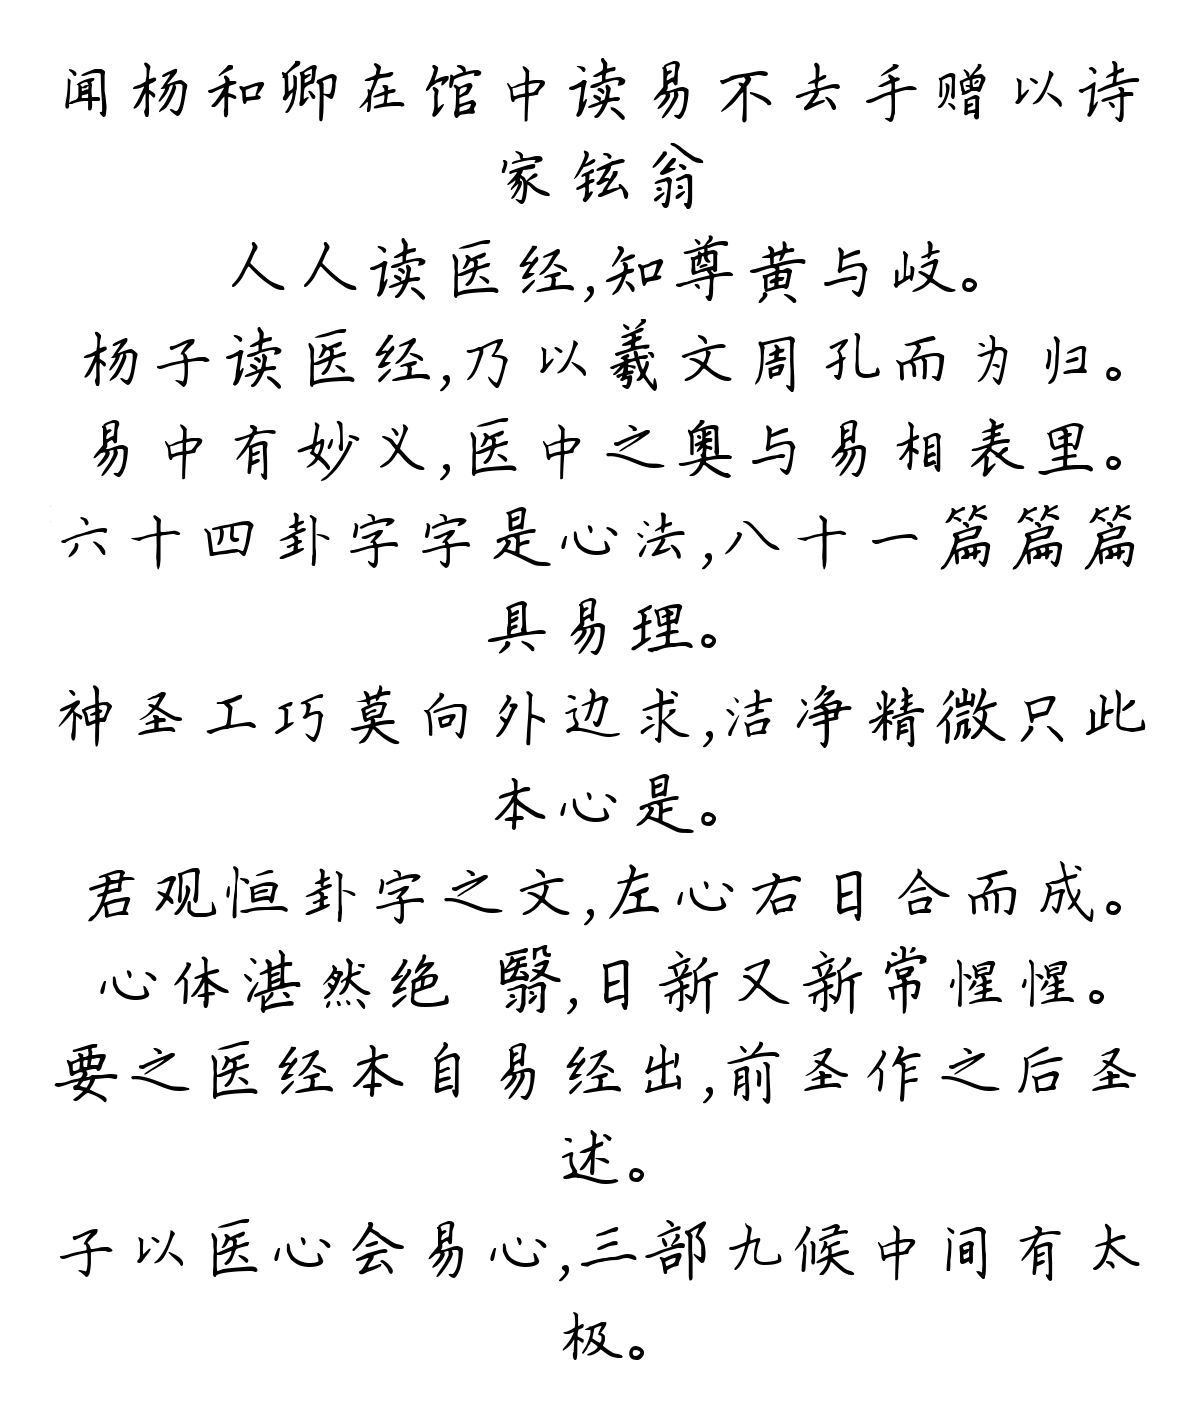 闻杨和卿在馆中读易不去手赠以诗
家铉翁
人人读医经,知尊黄与岐。
杨子读医经,乃以羲文周孔而为归。
易中有妙义,医中之奥与易相表里。
六十四卦字字是心法,八十一篇篇篇
具易理。
神圣工巧莫向外边求,洁净精微只此
本心是。
君观恒卦字之文,左心右日合而成。
心体湛然绝 翳,日新又新常惺惺。
要之医经本自易经出,前圣作之后圣
述。
子以医心会易心,三部九候中间有太
极。